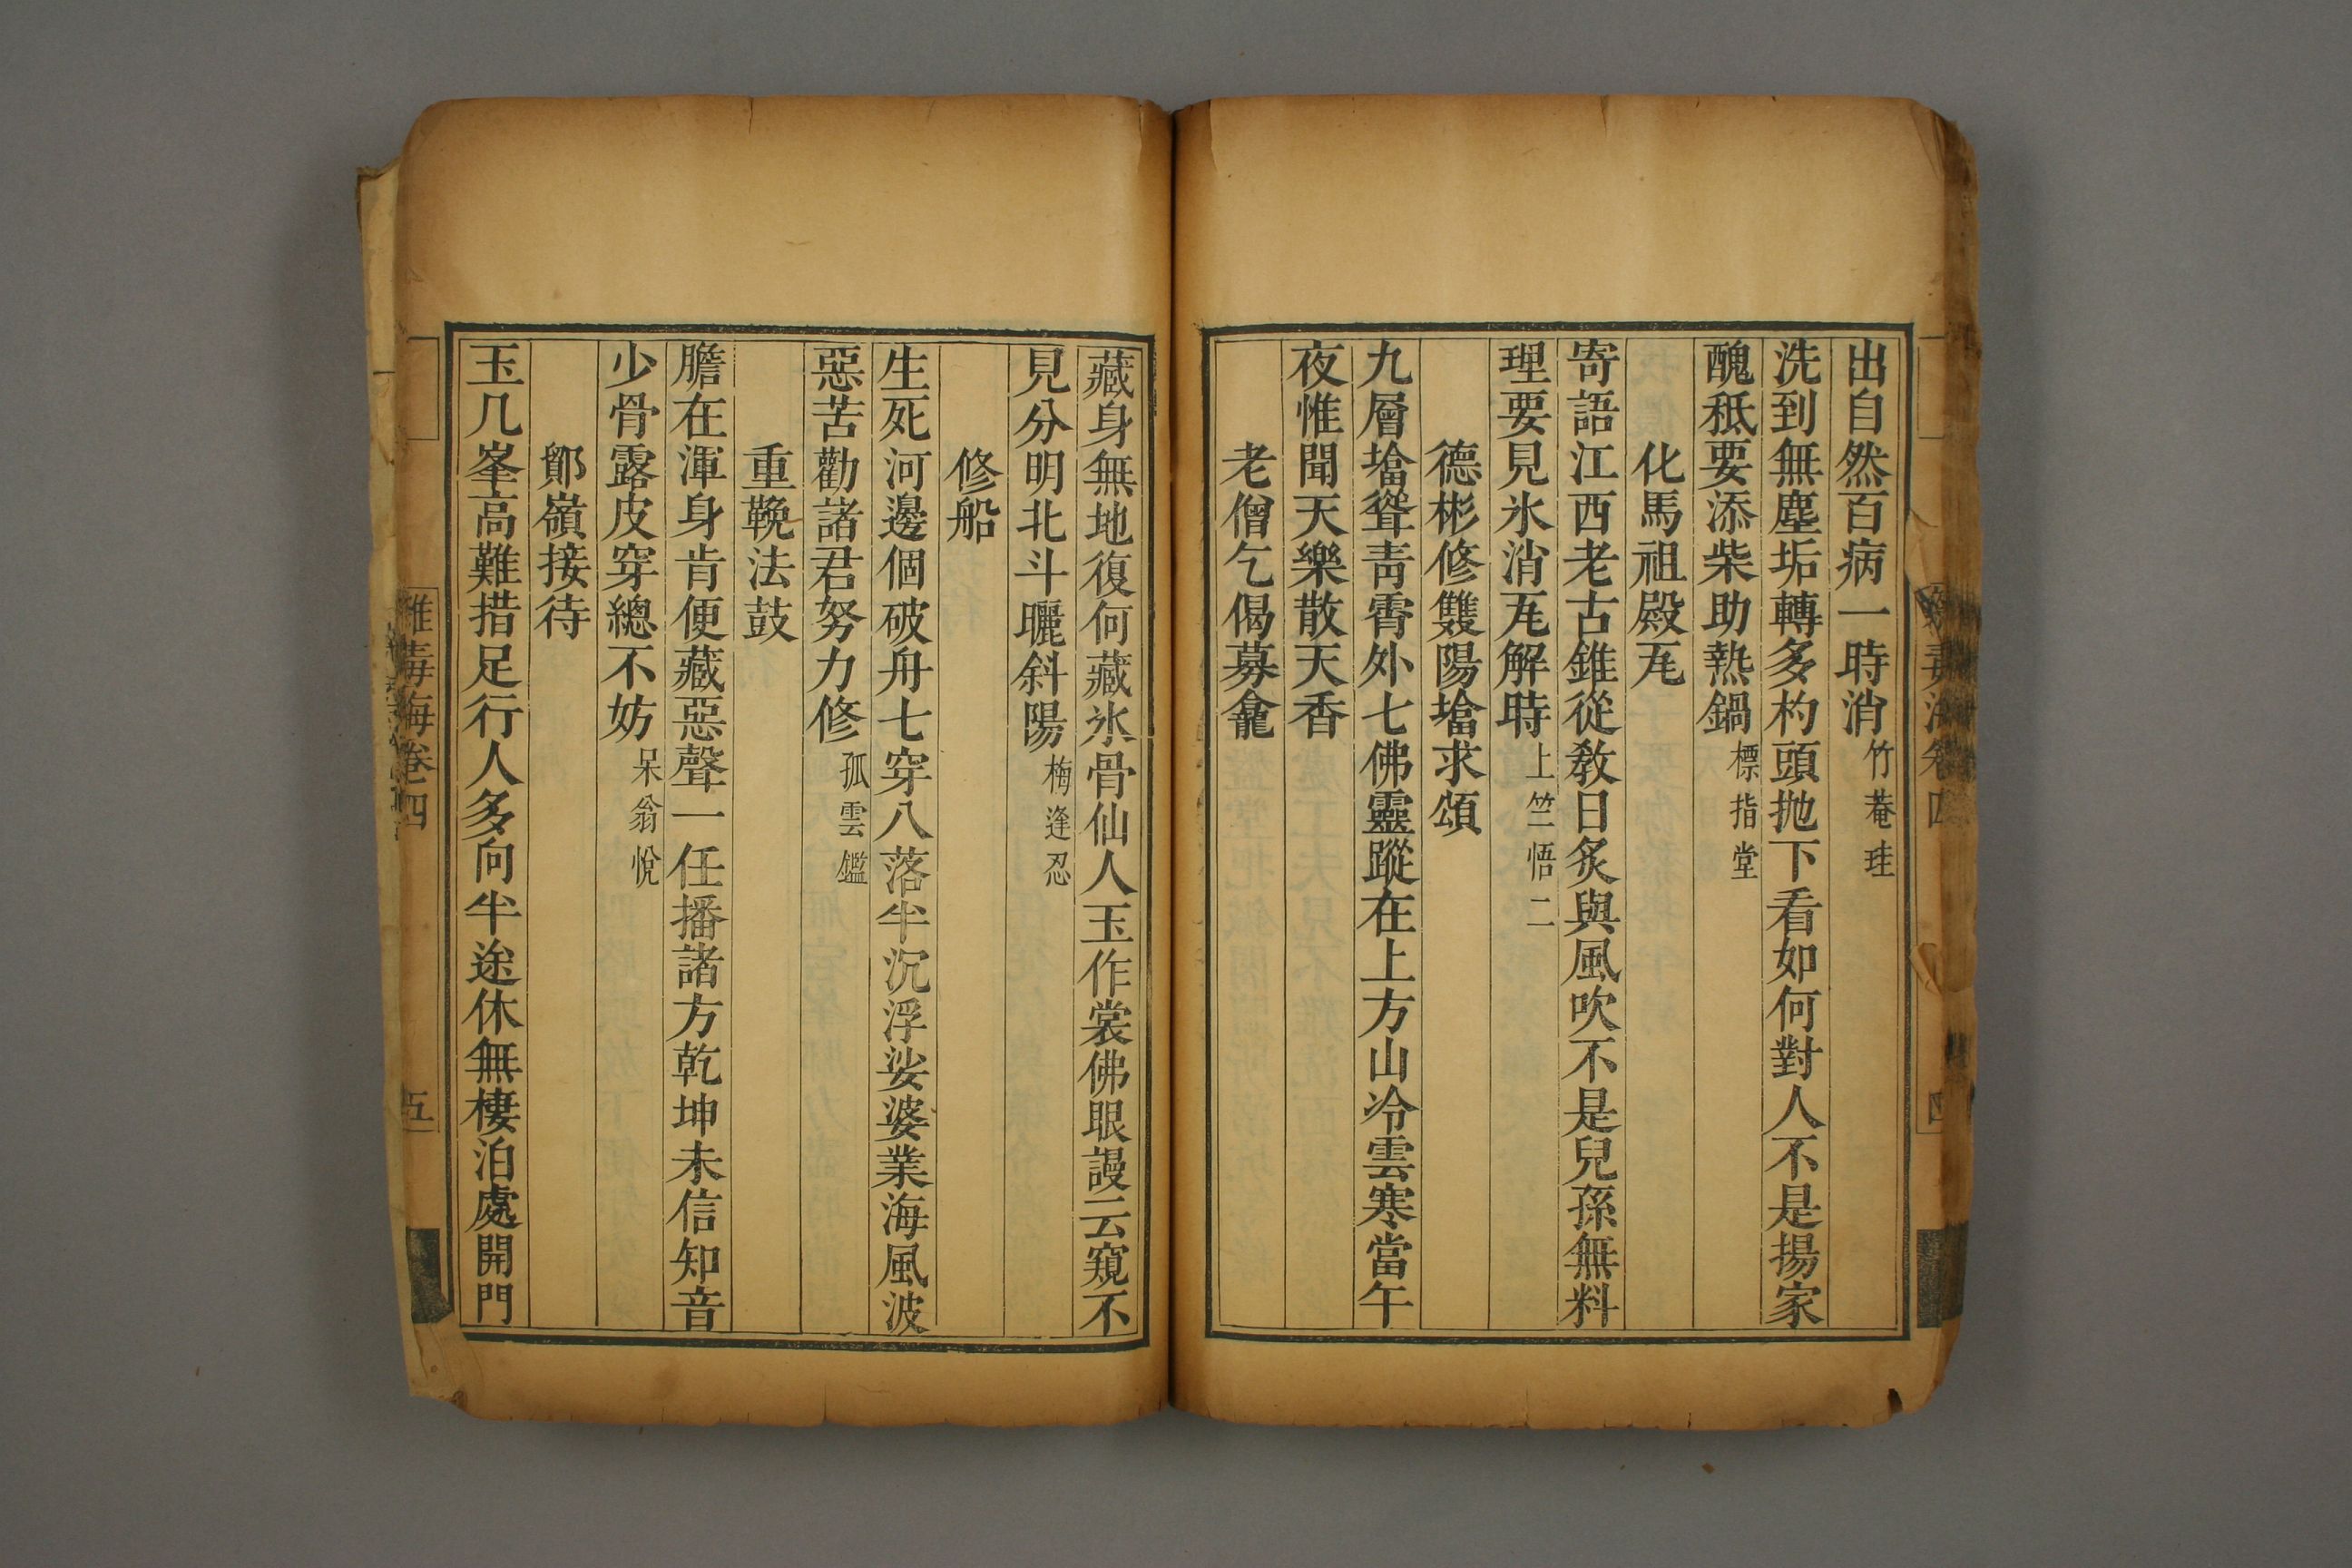 出自然百病一時消竹菴珪
洗到無塵垢轉多杓頭抛下看如何對人不是揚家
醜秪要添柴助熱鍋標指堂
化馬祖殿瓦
寄語江西老古錐從教日炙與風吹不是兒孫無料
理要見氷消瓦解時上竺悟二
德彬修雙陽墖求頌
九層墖聳青霄外七佛靈蹤在上方山冷雲寒當午
夜惟聞天樂散天香
老僧乞偈募龕
藏身無地復何藏氷骨仙人玉作裳佛眼謾云窺不
見分明北斗曬斜陽梅逢忍
修船
生死河邊個破舟七穿八落半沉浮娑婆業海風波
惡苦勸諸君努力修孤雲鑑
重鞔法鼓
膽在渾身肯便藏惡聲一任播諸方乾坤未信知音
少骨露皮穿總不妨呆翁悅
鄮嶺接待
玉几峯高難措足行人多向半途休無棲泊處開門
雜毒海卷四
五